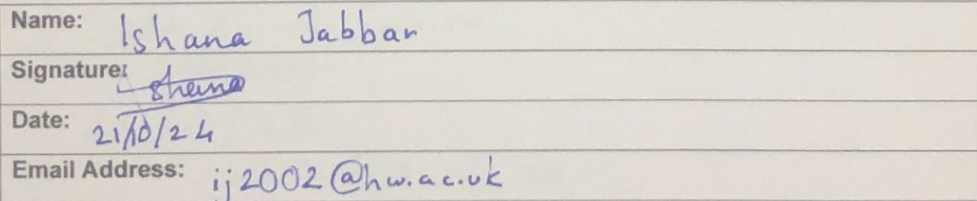 Name: Ishana Jabbar
Signature: Ishana
Date: 21/10/24
Email Address: ij2002@hw.ac.uk